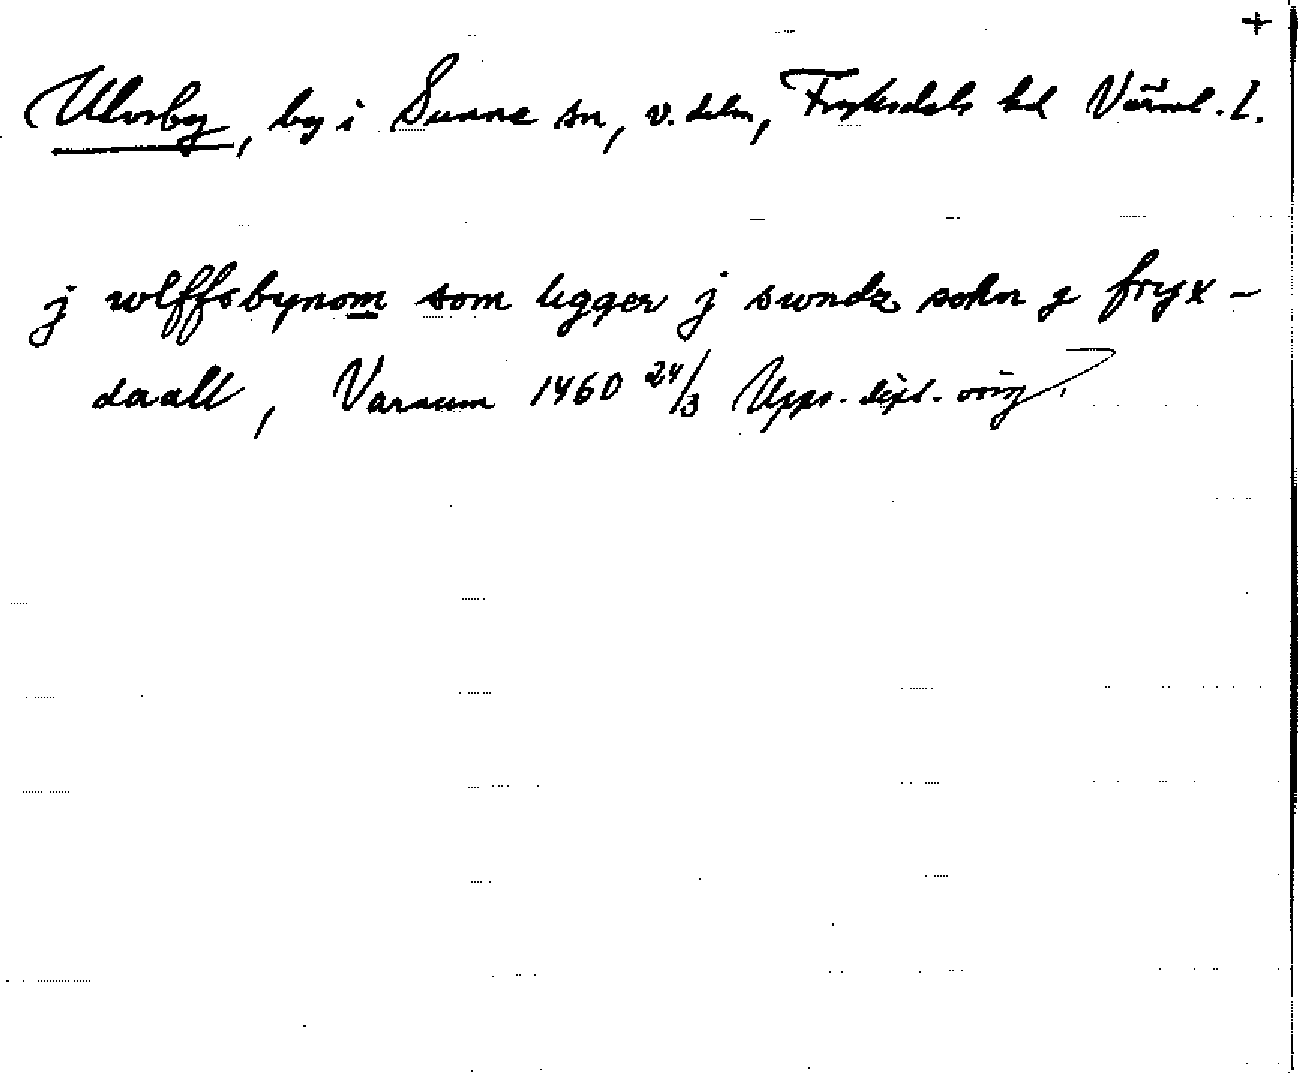 +
Ulvsby, by i Sunne sn, v. delen, Fryksdals hd Värml. l.
j wlffsbynom som ligger j swndz sokn j fryx-
daall, Varnum 1460 24/3 Upps. dipl. orig.